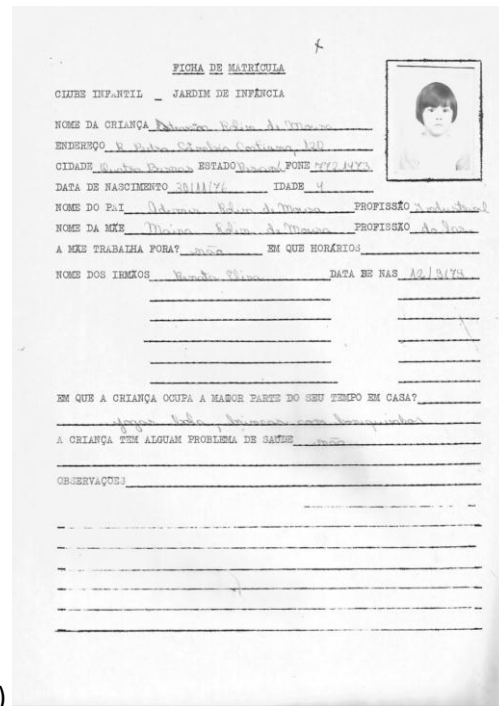 FICHA DE MATRÍCULA
CLUBE INFANTIL _ JARDIM DE INFÂNCIA
NOME DA CRIANÇA Rolim de Moura
ENDEREÇO R Pedro 120
CIDADE Quatro Barras ESTADO Paraná FONE 7721473
DATA DE NASCIMENTO 30/11/76 IDADE 4
NOME DO PAI Rolim de Moura PROFISSÃO Industrial
NOME DA MÃE Rolim de Moura PROFISSÃO do lar
A MÃE TRABALHA FORA? não EM QUE HORÁRIOS
NOME DOS IRMÃOS Renata DATA DE NAS 12/9/74
EM QUE A CRIANÇA OCUPA A MAIOR PARTE DO SEU TEMPO EM CASA?
jogar bola, brincar com brinquedos
A CRIANÇA TEM ALGUAM PROBLEMA DE SAÚDE não
OBSERVAÇÕES
)